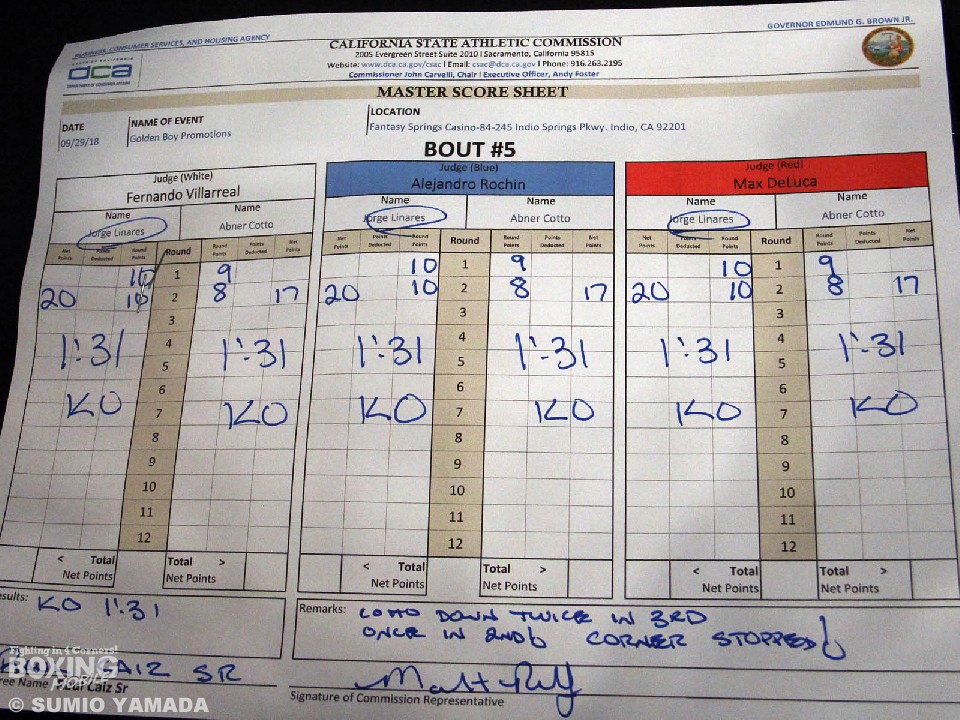 BUSINESS, CONSUMER SERVICES, AND HOUSING AGENCY
GOVERNOR EDMUND G. BROWN JR.
dca
CALIFORNIA STATE ATHLETIC COMMISSION
2005 Evergreen Street Suite 2010 | Sacramento, California 95815
Website: www.dca.ca.gov/csac | Email: csac@dca.ca.gov | Phone: 916.263.2195
Commissioner John Carvelli, Chair | Executive Officer, Andy Foster
MASTER SCORE SHEET
DATE NAME OF EVENT LOCATION
09/29/18 Golden Boy Promotions Fantasy Springs Casino-84-245 Indio Springs Pkwy. Indio, CA 92201
BOUT #5
Judge (White) Judge (Blue) Judge (Red)
Fernando Villarreal Alejandro Rochin Max DeLuca
Name Name Name Name Name Name
Jorge Linares Abner Cotto Jorge Linares Abner Cotto Jorge Linares Abner Cotto
Net Points Points Deducted Round Points Round Round Points Points Deducted Net Points Net Points Points Deducted Round Points Round Round Points Points Deducted Net Points Net Points Points Deducted Round Points Round Round Points Points Deducted Net Points
10 1 9 10 1 9 10 1 9
20 10 2 8 17 20 10 2 8 17 20 10 2 8 17
3 3 3
1:31 4 1:31 1:31 4 1:31 1:31 4 1:31
5 5 5
6 6 6
KO 7 KO KO 7 KO KO 7 KO
8 8 8
9 9 9
10 10 10
11 11 11
12 12 12
< Total Total > < Total Total > < Total Total >
Net Points Net Points Net Points Net Points Net Points Net Points
sults: KO 1:31
Remarks: COTTO DOWN TWICE IN 3RD
ONCE IN 2ND CORNER STOPPED
CAIZ SR
ree Name Raul Caiz Sr
Signature of Commission Representative
Fighting in 4 Corners!
BOXING
MOBILE
© SUMIO YAMADA